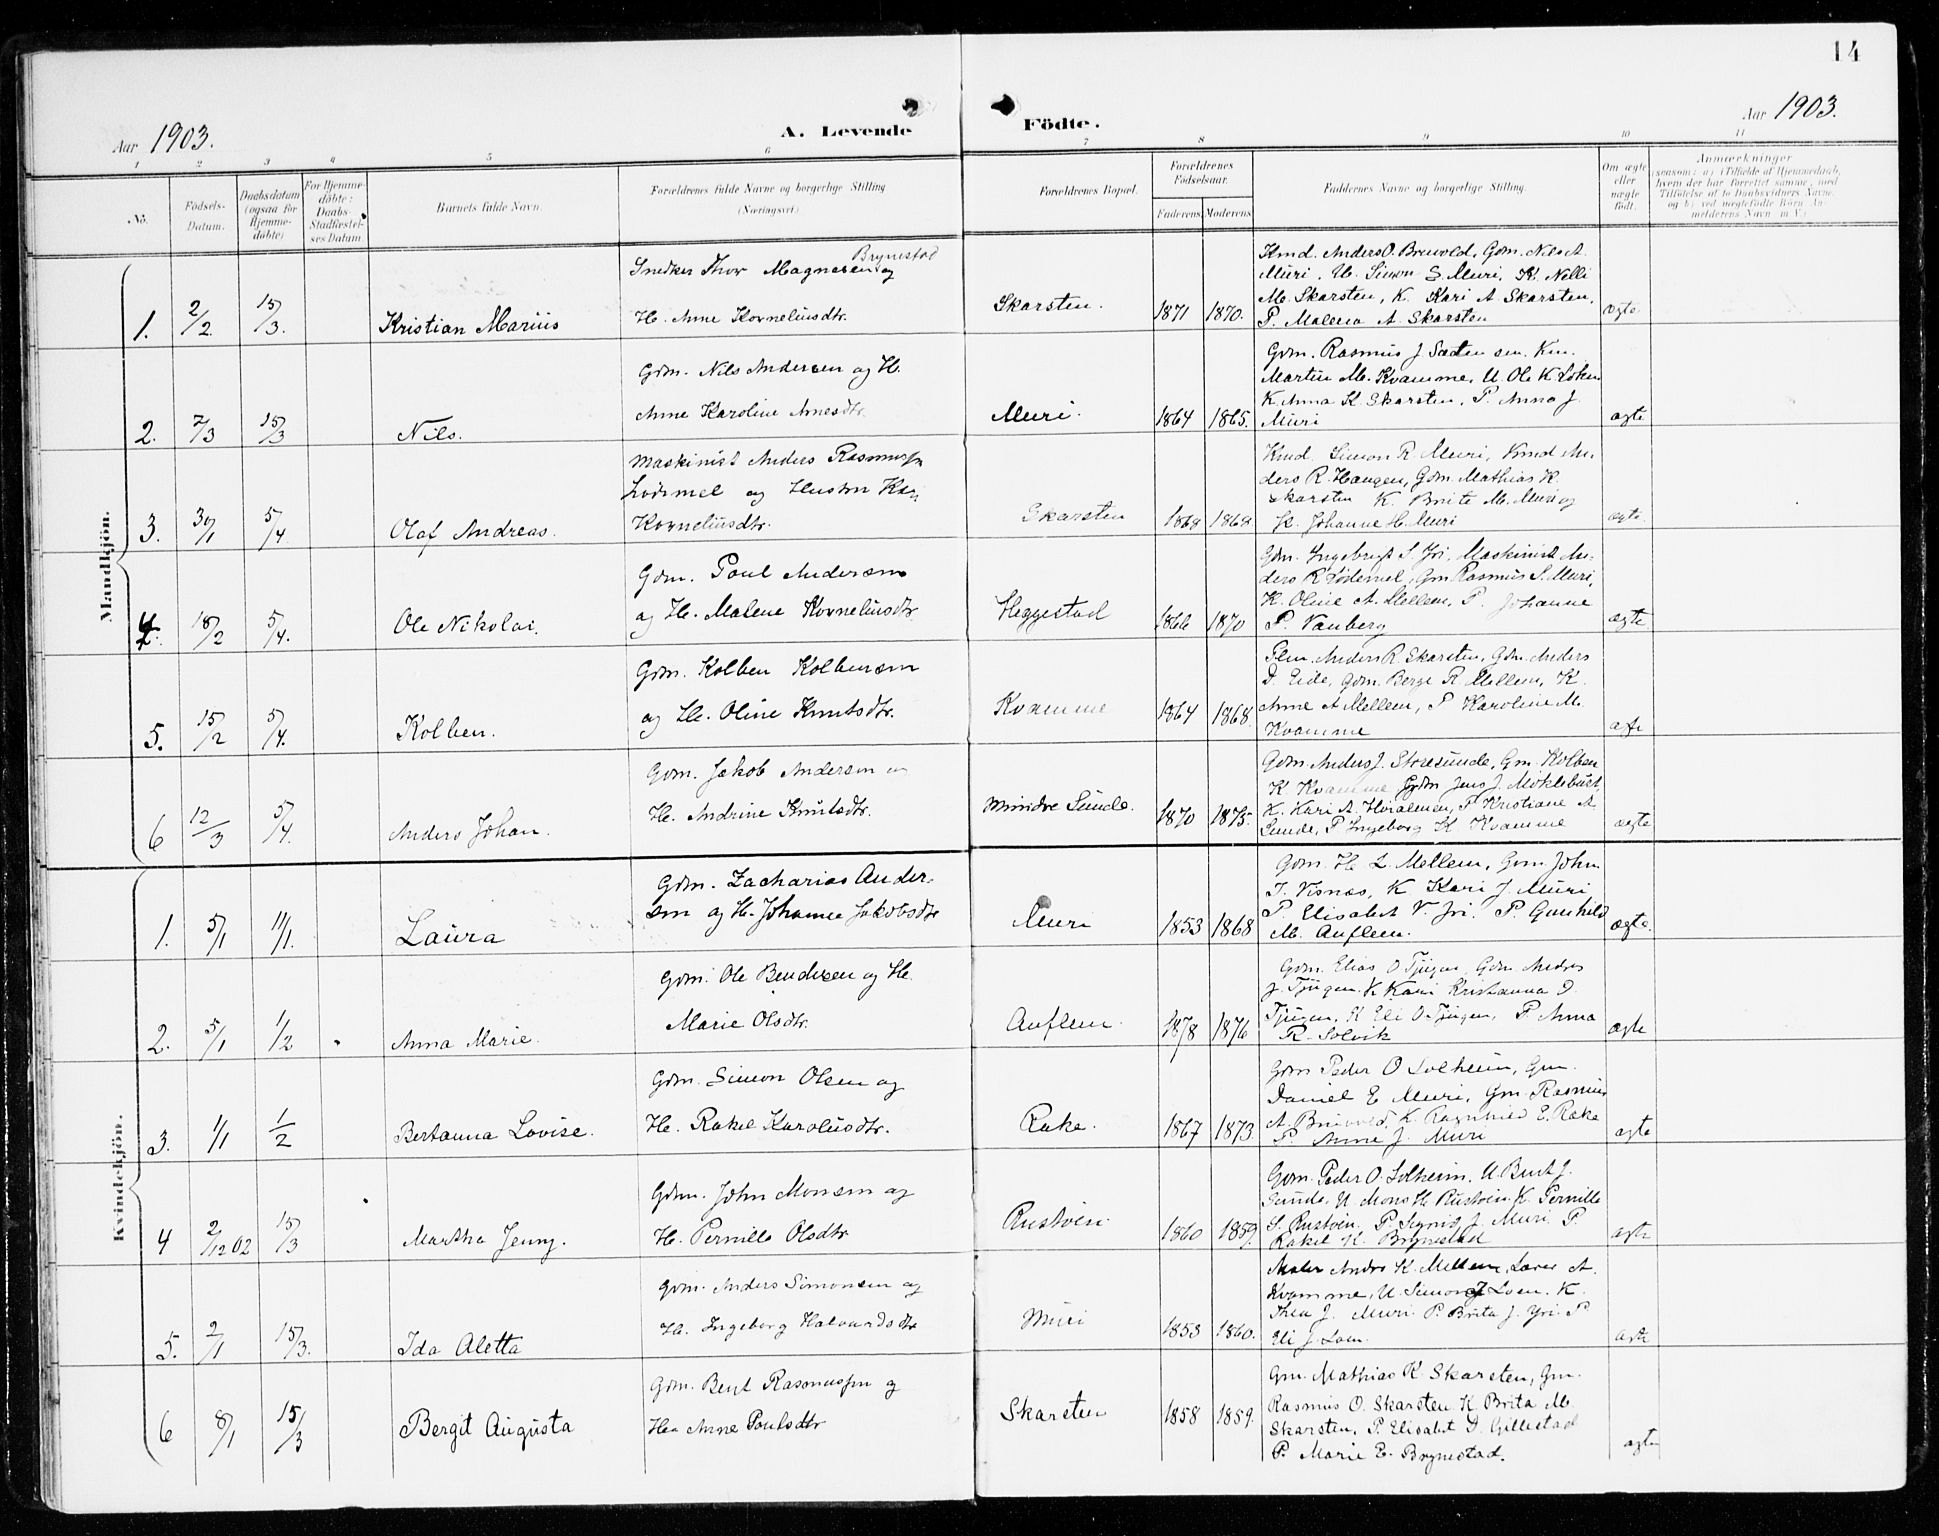 14
Aar 1903.
A. Levende
Födte.
Aar 1903.
1 2 3 4 5 6 7 8 9 10 11
No.
Födsels-
Datum.
Daabsdatum
(ogsaa for
Hjemme-
döbte)
For Hjemme-
döbte:
Daabs-
Stadfæstel-
ses Datum
Barnets fulde Navn.
Forældrenes fulde Navne og borgerlige Stilling
(Næringsvei.)
Forældrenes Bopæl.
Forældrenes
Födselsaar.
Faderens Moderens
Faddernes Navne og borgerlige Stilling.
Om ægte
eller
uægte
födt.
Anmærkninger
(saasom: a) i Tilfælde af Hjemmedaab,
hvem der har forrettet samme, med
Tilföielse af to Daabsvidners Navne,
og b) ved uægtefödte Börn An-
melderens Navn m. V.)
Mandkjön.
1. 2/2 15/3. Kristian Marius
Snedker Thor Magnesen og
Brynestad
H. Anne Korneliusdtr.
Skarsten. 1871 1870.
Kmd. Anders O. Bruvold, Gdm. Nils A.
Muri, U. Simon S. Muri, K. Nelli
M. Skarsten, K. Kari A. Skarsten,
P. Malena A. Skarsten
ægte.
2. 7/3 15/3 Nils.
Gdm. Nils Andersen og H.
Anne Karoline Arnesdtr.
Muri. 1864 1865.
Gdm. Rasmus J. Sæten sen. Km.
Martin M. Kvamme, U. Ole K. Loken
K. Anna K. Skarsten, P. Anna J.
Muri
ægte
3. 30/1 5/4 Olaf Andreas.
Maskinist Anders Rasmussn
Lödemel og Hustru Kari
Korneliusdtr.
Skarsten 1868 1868.
Kmd. Simon R. Muri, Kmd An-
ders R. Haugen, Gdm. Mathias K.
Skarsten K. Brite M. Muri og
K. Johanne H. Muri
ægte.
4. 18/2 5/4. Ole Nikolai.
Gdm. Poul Andersen
og H. Malene Kornelusdtr.
Heggestad 1866 1870
Gdm. Ingebrigt S. Yri, Maskinist An-
ders R. Lödemel, Gm Rasmus S. Muri,
K. Oline A. Mellem, P. Johanne
P. Vanberg
ægte.
5. 15/2 5/4. Kolben.
Gdm. Kolben Kolbensen
og H. Oline Knutsdtr.
Kvamme 1864 1868.
Anders R. Skarsten, Gdm. Anders
D. Eide, Gdm. Berge R. Mellem, K.
Anne A Mellem, P Karoline M.
Kvamme
ægte
6 12/3 5/4. Anders Johan.
Gdm. Jakob Andersen og
H. Andrine Knutsdtr.
Mindre Sunde. 1870 1875.
Gdm. Anders J. Storesunde, Gm. Kolben
K Kvamme Gdm Jens J. Möklebust,
K. Kari A. P Kristiane A
Sunde, P Ingeborg K. Kvamme
ægte
Kvindekjön.
1. 5/1 11/1. Laura
Gdm. Zacharias Ander-
sen og H. Johanne Jakobsdtr
Muri 1853 1868
Gdm. H. L. Mellem, Gm. John
T. Visnæs, K Kari J. Muri
P. Elisabet V. Yri. P. Gunhild
M. Auflem.
ægte.
2. 5/1 1/2 Anna Marie.
Gdm. Ole Bendiksen og H.
Marie Olsdtr.
Auflem. 1878 1876
Gdm. Elias O Tjugen, Gdm. Andres
J. Tjugen K Kari Kristianna D.
Tjugen, K Eli O. Tjugen, P. Anna
R. Solvik
ægte
3. 1/1 1/2 Bertanna Lovise.
Gdm. Simon Olsen og
H. Rakel Karolusdtr.
Rake. 1867 1873
Gdm Peder O Solheim, Gm.
Daniel E Muri, Gm. Rasmus
A Bruvold, K. Ragnhild E. Rake
P. Anne J. Muri
ægte
4 2/12 02 15/3 Martha Jenny.
Gdm. John Monsen og
H. Pernille Olsdtr
Rustöen 1860 1859.
Gdm. Peder O. Solheim, U Bent J.
Sunde, U Mons H Rustöen K. Pernille
S. Rustöen. P. Signid J. Muri P.
Rakel K. Brynestad
ægte
5. 2/1 15/3. Ida Aletta
Gdm. Anders Simonsen og
H. Ingeborg Halvardsdtr
Muri 1853 1860.
Maler Andr. K. Mellem, Lærer A.
Kvamme, U. Simon J Loen, K.
Thea J. Muri P. Brita J. Yri P
Eli J. Loen.
ægte
6 8/1 15/3 Bergit Augusta
Gdm. Bent Rasmussen og
H. Anne Poulsdtr
Skarsten 1858 1859.
Gm. Mathias K Skarsten, Gm.
Rasmus O. Skarsten K. Brita M.
Skarsten, P. Elisabet D. Gillestad
P. Marie E. Brynestad.
ægte